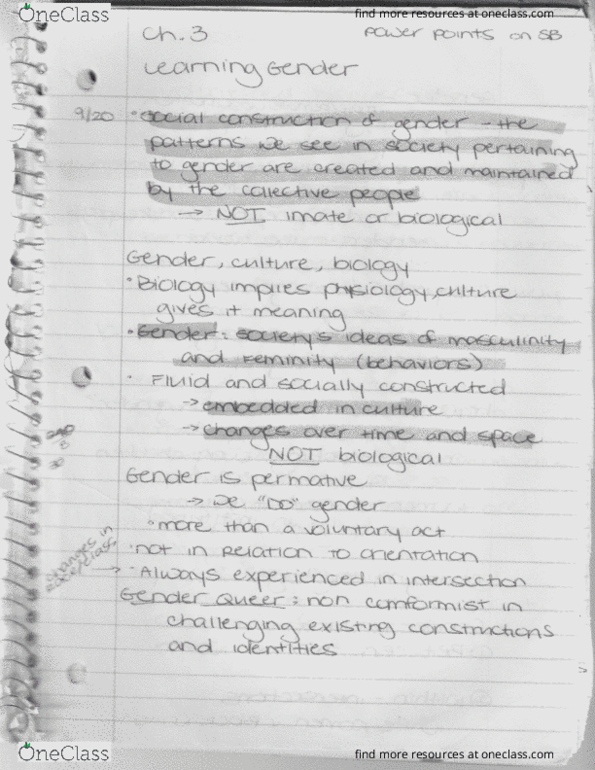 OneClass
find more resources at oneclass.com
Ch. 3
Power Points on SB
Learning Gender
9/20
• Social construction of gender - the
patterns we see in society pertaining
to gender are created and maintained
by the colective people
→ NOT imate or biological
Gender, culture, biology
• Biology implies physiology, culture
gives it meaning
• Gender: society's ideas of masculinity
and Feminity (behaviors)
• Fluid and socially constructed
→ embedded in culture
→ changes over time and space
NOT biological
Gender is permative
→ we "DO" gender
• more than a voluntary act
• not in relation to orientation
changes in
→ • Always experienced in intersection
Gender Queer: non comformist in
challenging existing constructions
and identities
OneClass
find more resources at oneclass.com